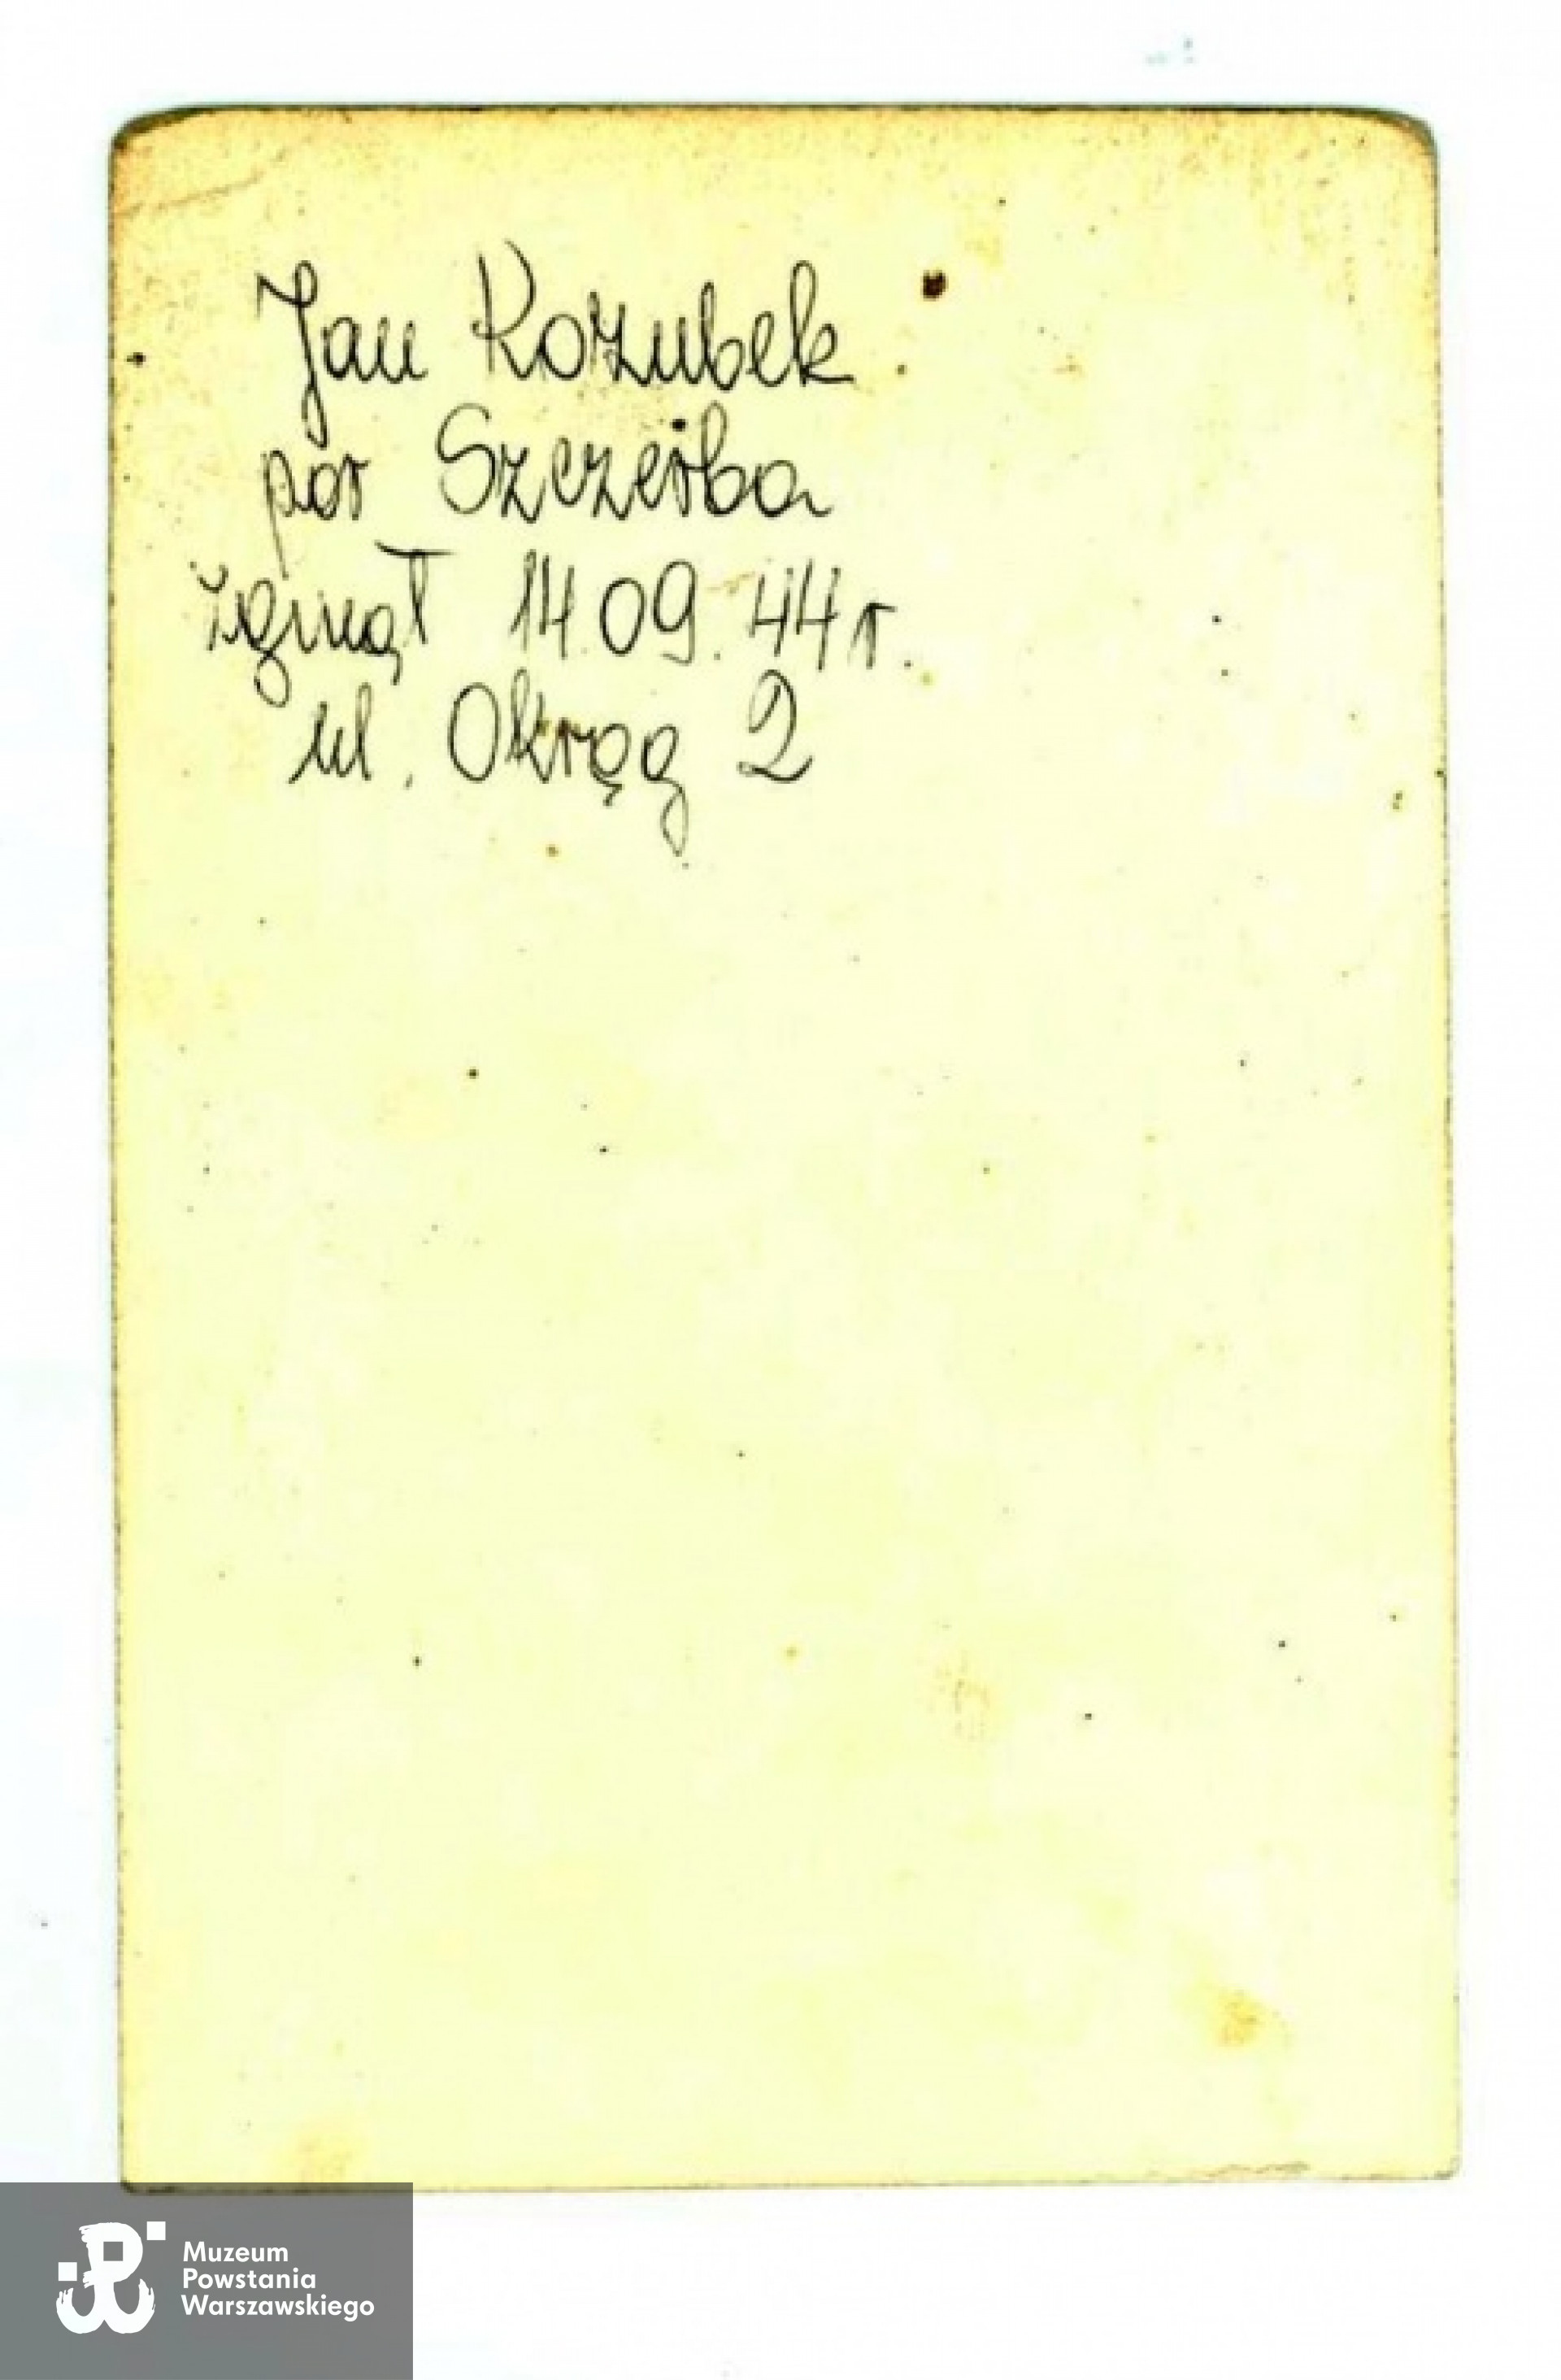 Jan Kozubek
por Szczerba
zginął 14.09.44 r.
ul. Okrąg 2
Muzeum
Powstania
Warszawskiego